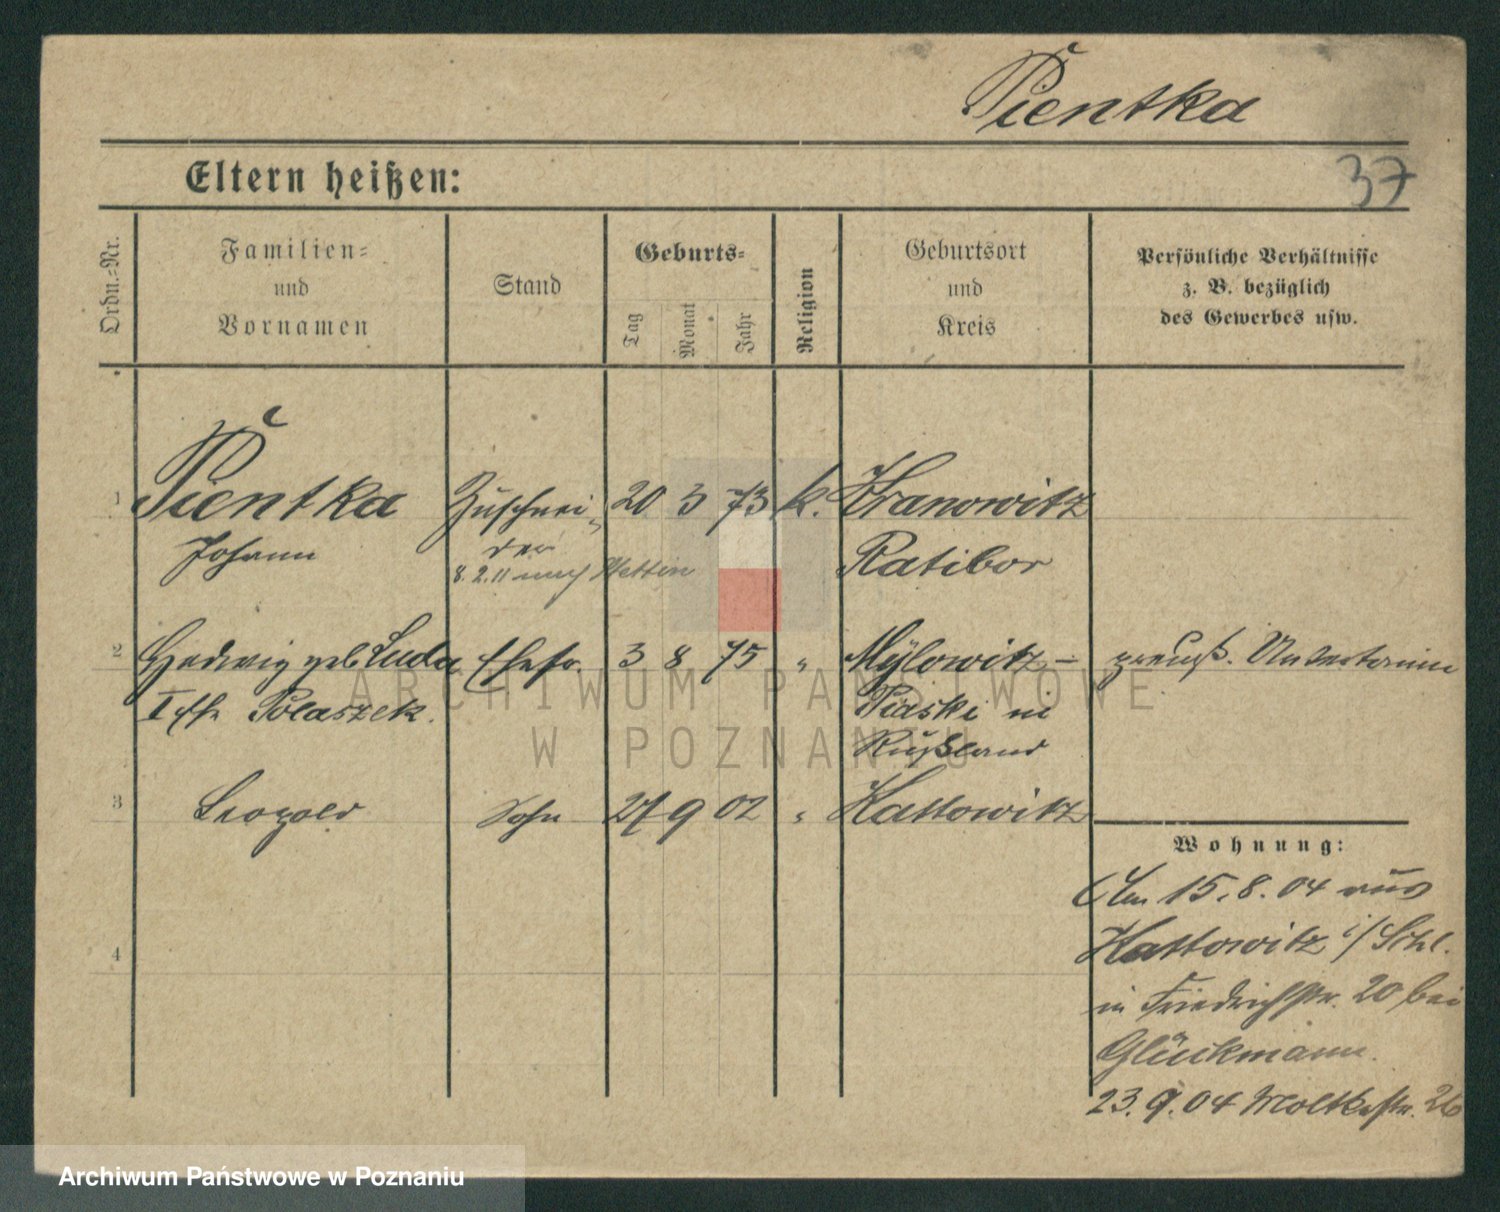 Pientka
37
Eltern heißen:
Ordn.-Nr.
Familien-
und
Vornamen
Stand
Geburts-
Tag
Monat
Jahr
Religion
Geburtsort
und
Kreis
Persönliche Verhältnisse
z. B. bezüglich
des Gewerbes usw.
1 Pientka Zuschnei- 20 3 73 k. Kranowitz
Johann der Ratibor
8.2.11 nach Stettin
2 Hedwig geb. Luda Ehefr. 3 8 75 " Mÿlowitz- preuß. Untertanin
I Ehe Polaszek. Piaski in
Rußland
3 Leopold Sohn 27 9 02 " Kattowitz
4
Wohnung:
Am 15.8.04 aus
Kattowitz i/Schl.
in Friedrichstr. 20 bei
Glückmann.
23.9.04 Moltkestr. 26
ARCHIWUM PAŃSTWOWE
W POZNANIU
Archiwum Państwowe w Poznaniu